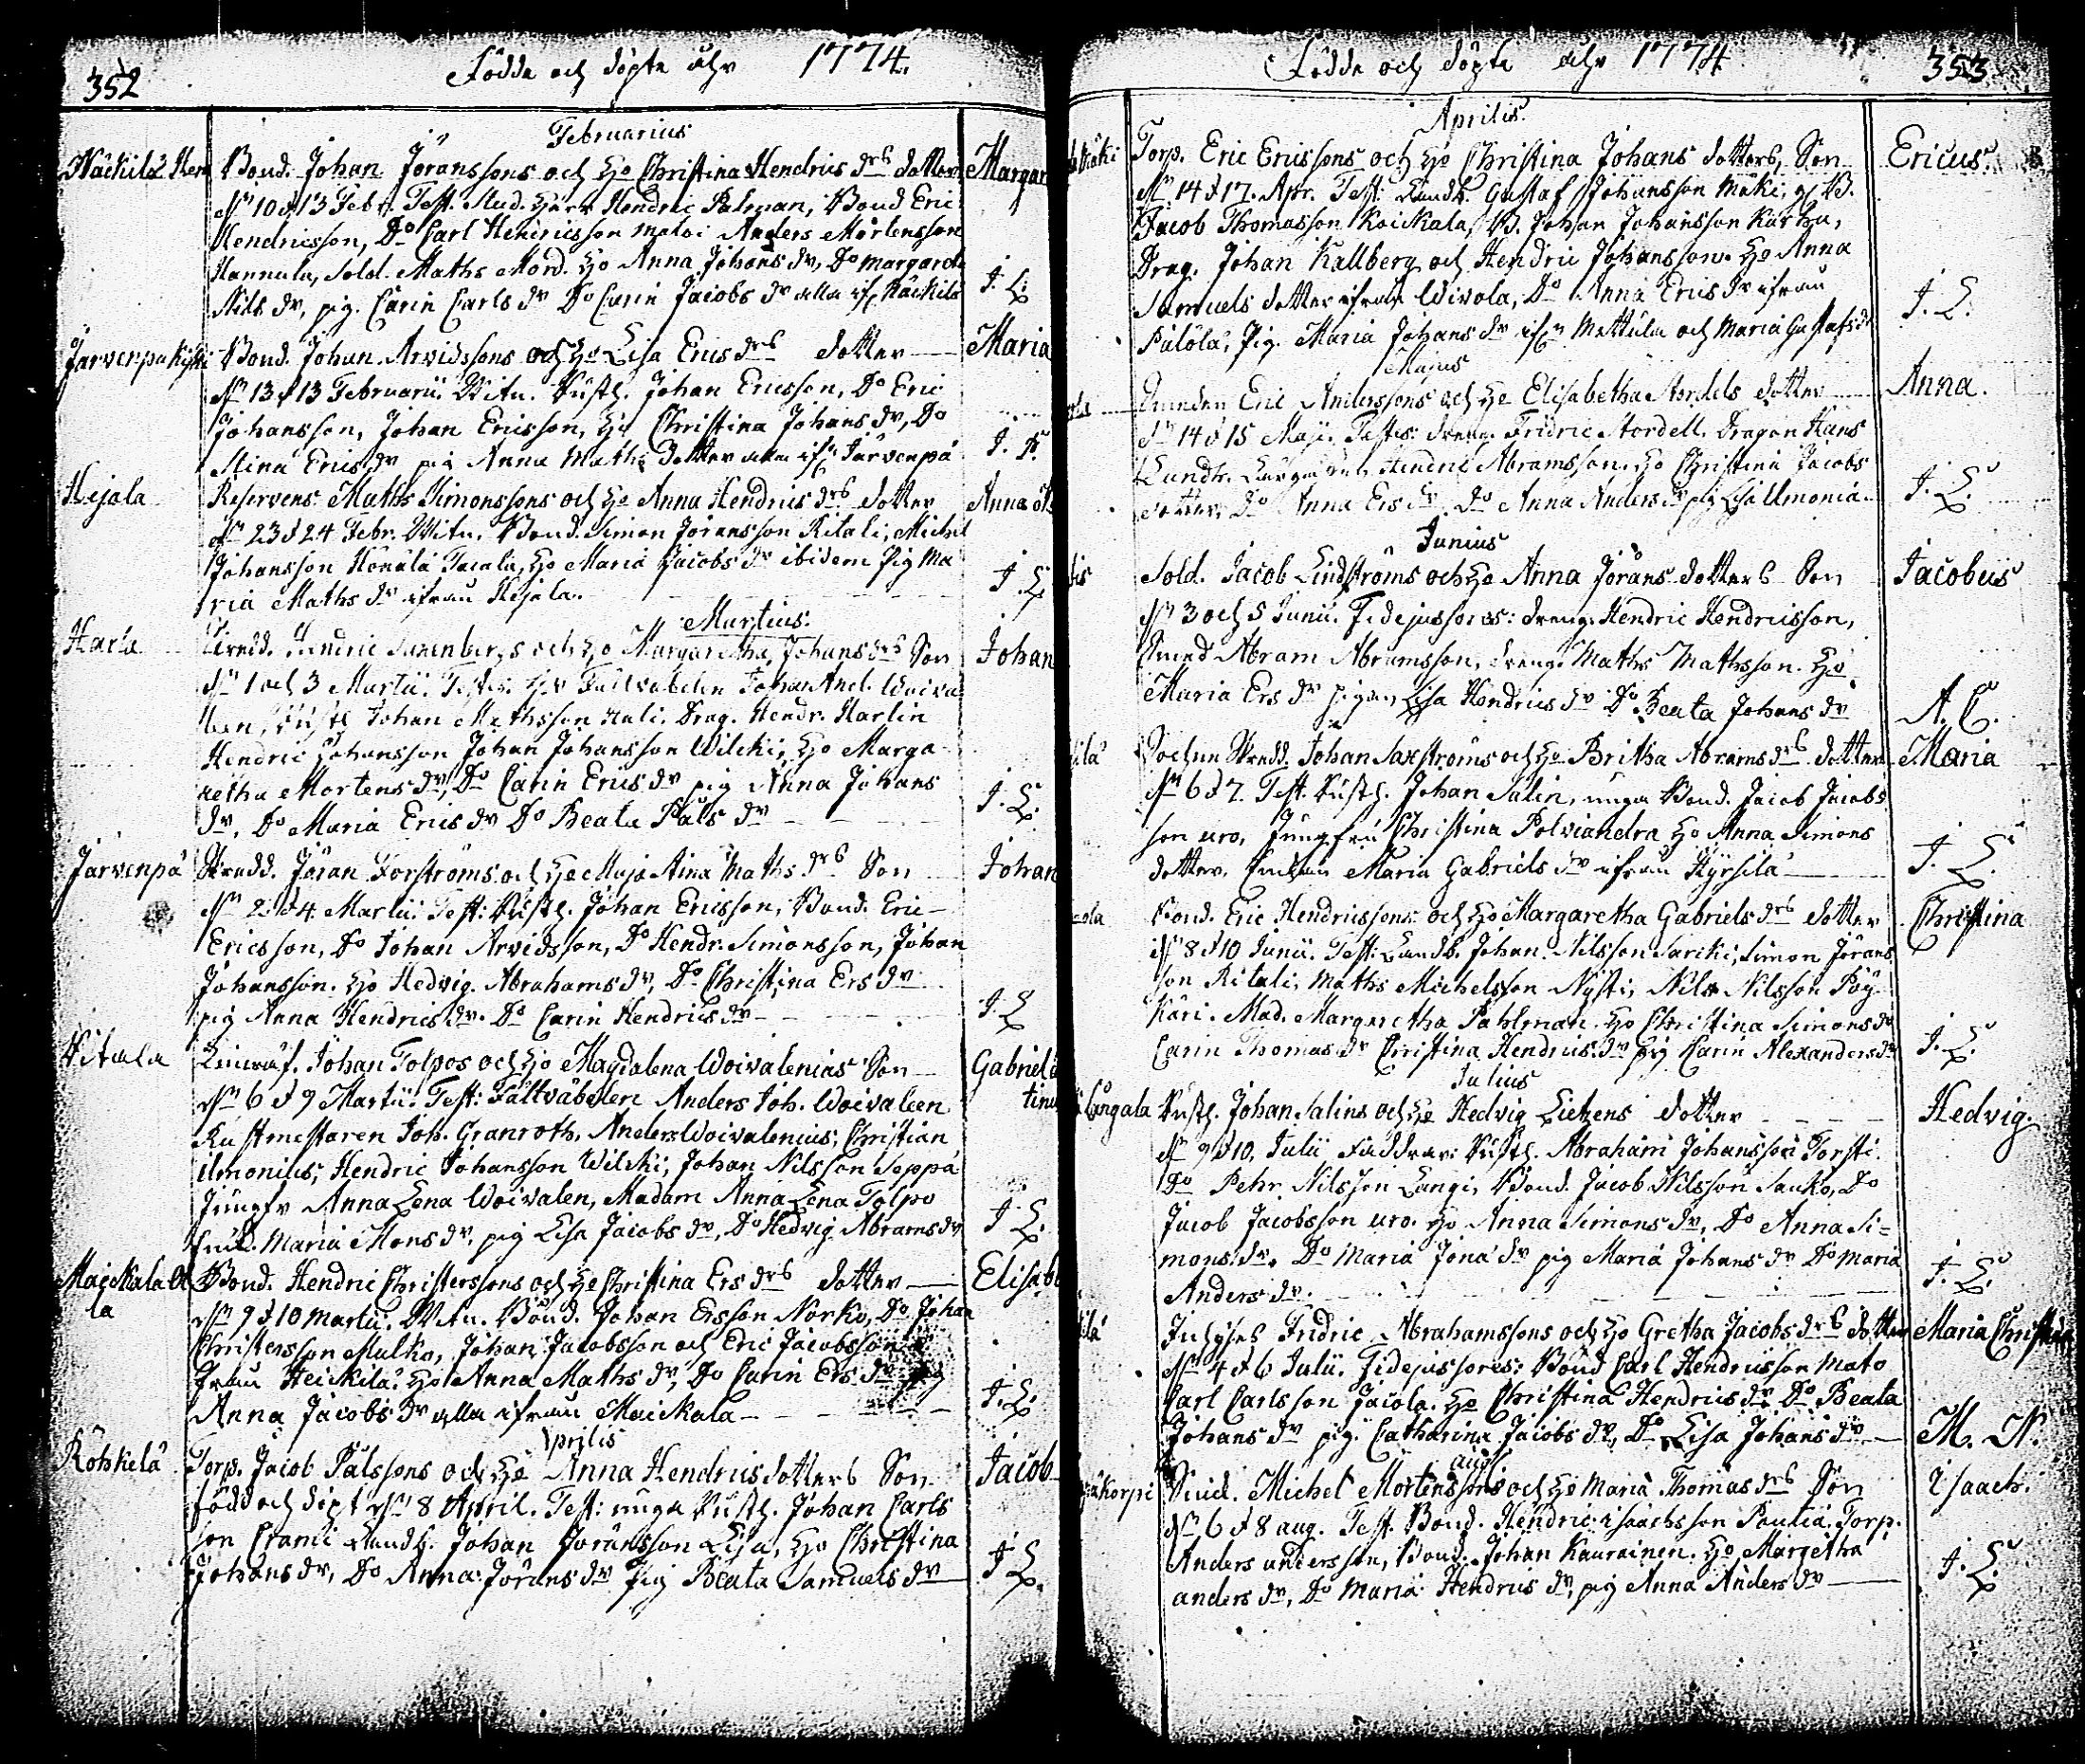 352
Födde och döpte åhr 1774.
Februarius
Bond. Johan Jöranssons och H:o Christina Hendrics drs dotter Margar
d. 10 d 13 Febr. Test. Stud. Herr Hendric Palman, Bond Eric
Hendricsson, Do Carl Henricsson Matoi Anders Mårtensson
Hannula, Sold. Maths Mård. Ho Anna Johans dr, Do Margareta
Nils dr, pig. Carin Carls dr Do Carin Jacobs dr alla ifr Näckilä J. L.
Järvenpä Bond. Johan Arvidssons och Ho Lisa Erics drs dotter Maria
d. 13 d 13 Februarii. Witn. Rusth. Johan Ericsson, Do Eric
Johansson, Johan Ericsson, Ho Christina Johans dr, Do
Stina Erics dr pig Anna Maths dotter alla ifr Järvenpä
Hejola Reservens Maths Simonssons och Ho Anna Hendrics drs dotter Anna
d. 23 d 24 Febr. Witn. Bond. Simon Joransson Ritali, Michel
Johansson Honala Tacala, Ho Maria Jacobs dr ibidem Pig Ma
ria Maths dr ifrån Hejola. J. L.
Martius.
Harla Hendric och Ho Margaretha Johans drs Son Johan
d. 1 och 3 Martii. Testes. Herr Fältväbelen Johan And. Woiva
len, Rusth Johan Mathsson Hali. Drag. Hendr. Harlin
Hendric Johansson Johan Johansson Wilcki, Ho Marga
retha Mortens dr, Do Carin Erics dr pig Anna Johans
dr, Do Maria Erics dr Do Beata Påls dr J. L.
Järvenpä Skredd. Jöran Forströms och Ho Maja Stina Maths drs Son Johan
d. 2 d 4 Martii. Test: Rusth. Johan Ericsson, Bond. Eric
Ericsson, Do Johan Arvidsson, Do Hendr. Simonsson, Johan
Johansson. Ho Hedvig Abrahams dr, Do Christina Ers dr
pig Anna Hendrics dr. Do Carin Hendrics dr J. L.
Johan Tolpos och Ho Magdalena Woivalenias Son Gabriel
tinus
d. 6 d 9 Martii. Test: Fältväbelen Anders Joh. Woivaleen
Rustmestaren Joh. Granroth, Anders Woivalenius, Christian
Ilmonius, Hendric Johansson Wilski, Johan Nilsson Seppä
Jungfr Anna Lena Woivalen, Madam Anna Lena Tolpo
Maria Mons dr, pig Lisa Jacobs dr, Do Hedvig Abrams dr J. L.
Maickala
la Bond. Hendric Christerssons och Ho Christina Ers drs dotter Elisab
d. 9 d 10 Martii. Witn. Bond. Johan Ersson Norko, Do Johan
Christersson Mulko, Johan Jacobsson och Eric Jacobsson
från Heickilä. Ho Anna Maths dr, Do Carin Ers dr pig
Anna Jacobs dr alla ifrån Maickala J. L.
Aprilis
Röhkelä Torp. Jacob Pålssons och Ho Anna Hendrics dotters Son Jacob
född och döpt d. 8 April. Test: unga Rusth. Johan Carls
son Crami Landb. Johan Joransson Lija, Ho Christina
Johans dr, Do Anna Jörans dr Pig Beata Samuels dr J. L.
Födde och döpte åhr 1774
353
Aprilis.
Torp. Eric Ericssons och Ho Christina Johans dotters Son Ericus.
d. 14 d 17. Apr. Test: Landb. Gustaf Johansson Mäki, B.
Jacob Thomasson Koickala, B. Johan Johansson Karha,
Drag. Johan Kallberg och Hendric Johansson. Ho Anna
Samuels dotter ifrån Wivola, Do Anna Erics dr ifrån
Palola, Pig. Maria Johans dr ifrn Mattula och Maria Gustafs dr J. L.
Majus
Eric Anderssons och Ho Elisabetha dotter Anna.
d. 14 d 15 Maji. Testes: dreng. Fridric Nordell. Dragon Hans
Hendric Abramsson. Ho Christina Jacobs
dotter, Do Anna Ers dr Do Anna Anders dr pig Lisa Ilmonia J. L.
Junius
Sold. Jacob Lindströms och Ho Anna Jörans dotters Son Jacobus
d. 3 och 5 Junii. Fidejussores: dreng. Hendric Hendricsson,
Abram Abramsson, dreng. Maths Mathsson. Ho
Maria Ers dr pigan Lisa Hendrics dr Do Beata Johans dr A. C.
Sochne Skredd. Johan Saxströms och Ho Britha Abrams drs dotter Maria
d. 6 d 7. Test. Rusth. Johan Salin, unga Bond. Jacob Jacobs
son uro, Jungfru Christina Polviandra Ho Anna Simons
dotter, Maria Gabriels dr ifrån Hyrsilä J. L.
Bond. Eric Hendricssons och Ho Margaretha Gabriels drs dotter Christina
d. 8 d 10 Junii. Test: Landb. Johan Nilsson Sariki, Simon Jörans
son Ritali, Maths Michelsson Nysti, Nils Nilsson Pöy
kari. Mad. Margaretha Pahlman. Ho Christina Simons dr
Carin Thomas dr Christina Hendrics dr Pig Carin Alexanders dr J. L.
Julius
Långala Rusth. Johan Salins och Ho Hedvig Lietzens dotter Hedvig.
d. 9 d 10. Julii Faddrar: Rusth. Abraham Johansson Torsti.
Do Pehr Nilsson Langi, Bond. Jacob Nilsson Sauko, Do
Jacob Jacobsson uro. Ho Anna Simons dr, Do Anna Si=
mons dr. Do Maria Jona dr pig Maria Johans dr Do Maria
Anders dr. J. L.
Inhyses Fridric Abrahamssons och Ho Gretha Jacobs drs dotter Maria Christina
d. 4 d 6 Julii. Fidejussores: Bond Carl Hendricsson Mato
Carl Carlsson Jacola. Ho Christina Hendrics dr Do Beata
Johans dr pig. Catharina Jacobs dr, Do Lisa Johans dr M. N.
Aug.
korpi Michel Mortenssons och Ho Maria Thomas drs Son Isaach.
d. 6 d 8 aug. Test. Bond. Hendric isaachsson Pautia, Torp.
Anders andersson, Bond. Johan Kaurainen. Ho Margetha
anders dr, Do Maria Hendrics dr, pig Anna Anders dr J. L.